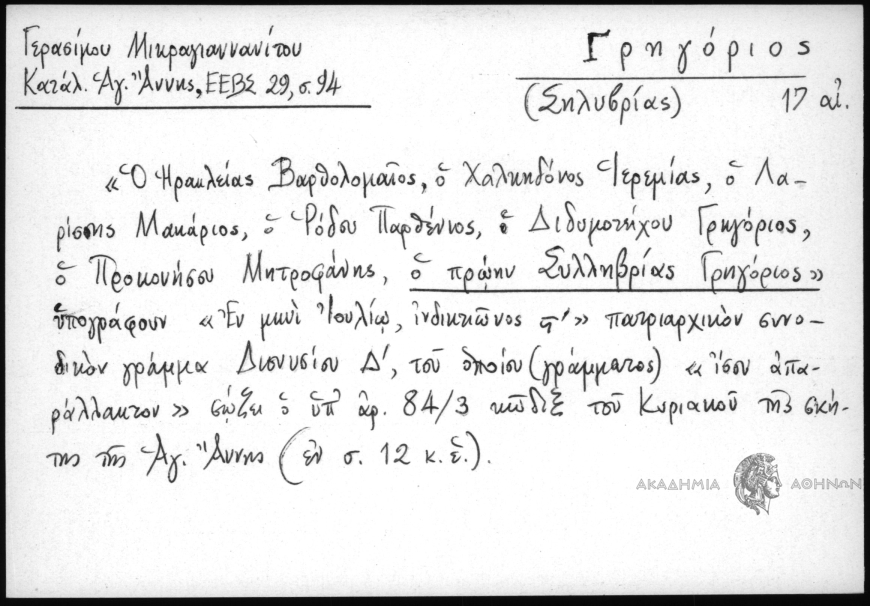 Γερασίμου Μικραγιαννανίτου
Κατάλ. Ἁγ. Ἄννης, ΕΕΒΣ 29, σ. 94
Γρηγόριος
(Σηλυβρίας) 17 αἰ.
«Ὁ Ἡρακλείας Βαρθολομαῖος, ὁ Χαλκηδόνος Ἱερεμίας, ὁ Λα-
ρίσσης Μακάριος, ὁ Ῥόδου Παρθένιος, ὁ Διδυμοτείχου Γρηγόριος,
ὁ Προκονήσου Μητροφάνης, ὁ πρῴην Συλληβρίας Γρηγόριος»
ὑπογράφουν «Ἐν μηνὶ Ἰουλίῳ, ἰνδικτιῶνος» πατριαρχικὸν συνο-
δικὸν γράμμα Διονυσίου Δ', τοῦ ὁποίου (γράμματος) «ἴσον ἀπα-
ράλλακτον» σῴζει ὁ ὑπ' ἀρ. 84/3 κῶδιξ τοῦ Κυριακοῦ τῆς σκή-
της τῆς Ἁγ. Ἄννης (ἐν σ. 12 κ. ἑ.).
ΑΚΑΔΗΜΙΑ ΑΘΗΝΩΝ